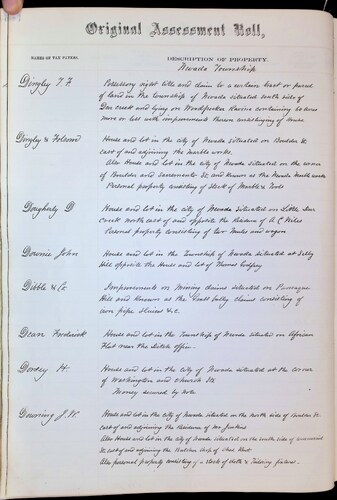 Original Assessment Roll,
NAMES OF TAX PAYERS.
DESCRIPTION OF PROPERTY.
Nevada Township
Dingley T. F.
Possessory right title and claim to a certain tract or parcel
of land in the township of Nevada situated south side of
Deer creek and lying on Woodpecker Ravine containing 20 acres
more or less with improvements thereon consisting of House
Dingley & Folsom
House and lot in the city of Nevada situated on Boulder St
east of and adjoining the marble works.
Also House and lot in the city of Nevada situated on the corner
of Boulder and Sacramento St and known as the Nevada Marble works
Personal property consisting of stock of Marble & Tools
Dougherty D
House and lot in the city of Nevada situated on Little Deer
creek north east of and opposite the residence of A. C. Niles
Personal property consisting of two Mules and wagon
Downie John
House and lot in the Township of Nevada situated at Selby
Hill opposite the House and lot of Thomas Godfrey
Dibble & Co.
Improvements on Mining claims situated on
Hill and known as the claims consisting of
iron pipe &c.
Dean Frederick
House and lot in the Township of Nevada situated in African
Flat near the Ditch office.
Dorsey H.
House and lot in the city of Nevada situated at the corner
of Washington and Church Sts
Money secured by note
Downing J. W.
House and lot in the city of Nevada situated on the north side of Boulder St.
east of and adjoining the residence of Mr Jenkins
Also House and lot in the city of Nevada situated on the south side of Commercial
St. east of and adjoining the Butcher shop of
Also personal property consisting of a stock of cloth & Tailoring fixtures.